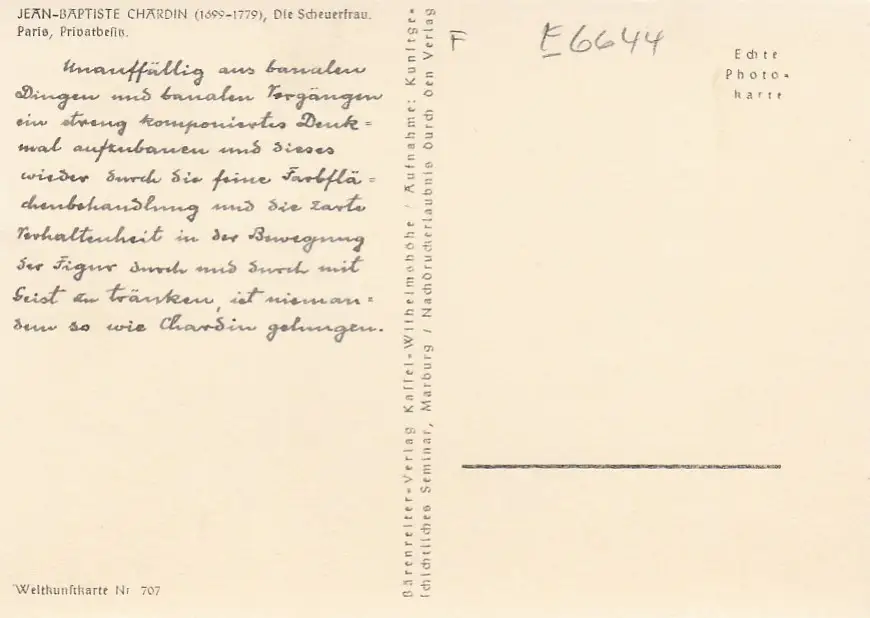 JEAN-BAPTISTE CHARDIN (1699-1779), Die Scheuerfrau.
Paris, Privatbesitz.
Unauffällig aus banalen
Dingen und banalen Vorgängen
ein streng komponiertes Denk=
mal aufzubauen und dieses
wieder durch die feine Farbflä=
chenbehandlung und die zarte
Verhaltenheit in der Bewegung
der Figur durch und durch mit
Geist zu tränken, ist nieman=
dem so wie Chardin gelungen.
Weltkunstkarte Nr 707
Bärenreiter-Verlag Kassel-Wilhelmshöhe / Aufnahme: Kunstge-
schichtliches Seminar, Marburg / Nachdruckerlaubnis durch den Verlag
F
E6644
Echte
Photo-
karte